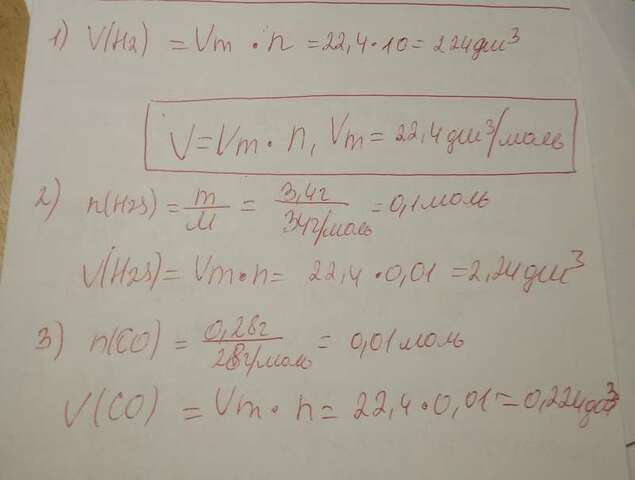 1) V(H2) = Vm · n = 22,4 · 10 = 224 дм³
V = Vm · n, Vm = 22,4 дм³/моль
2) n(H2S) = m/M = 3,4г/34г/моль = 0,1 моль
V(H2S) = Vm · n = 22,4 · 0,01 = 2,24 дм³
3) n(CO) = 0,28г/28г/моль = 0,01 моль
V(CO) = Vm · n = 22,4 · 0,01 = 0,224 дм³